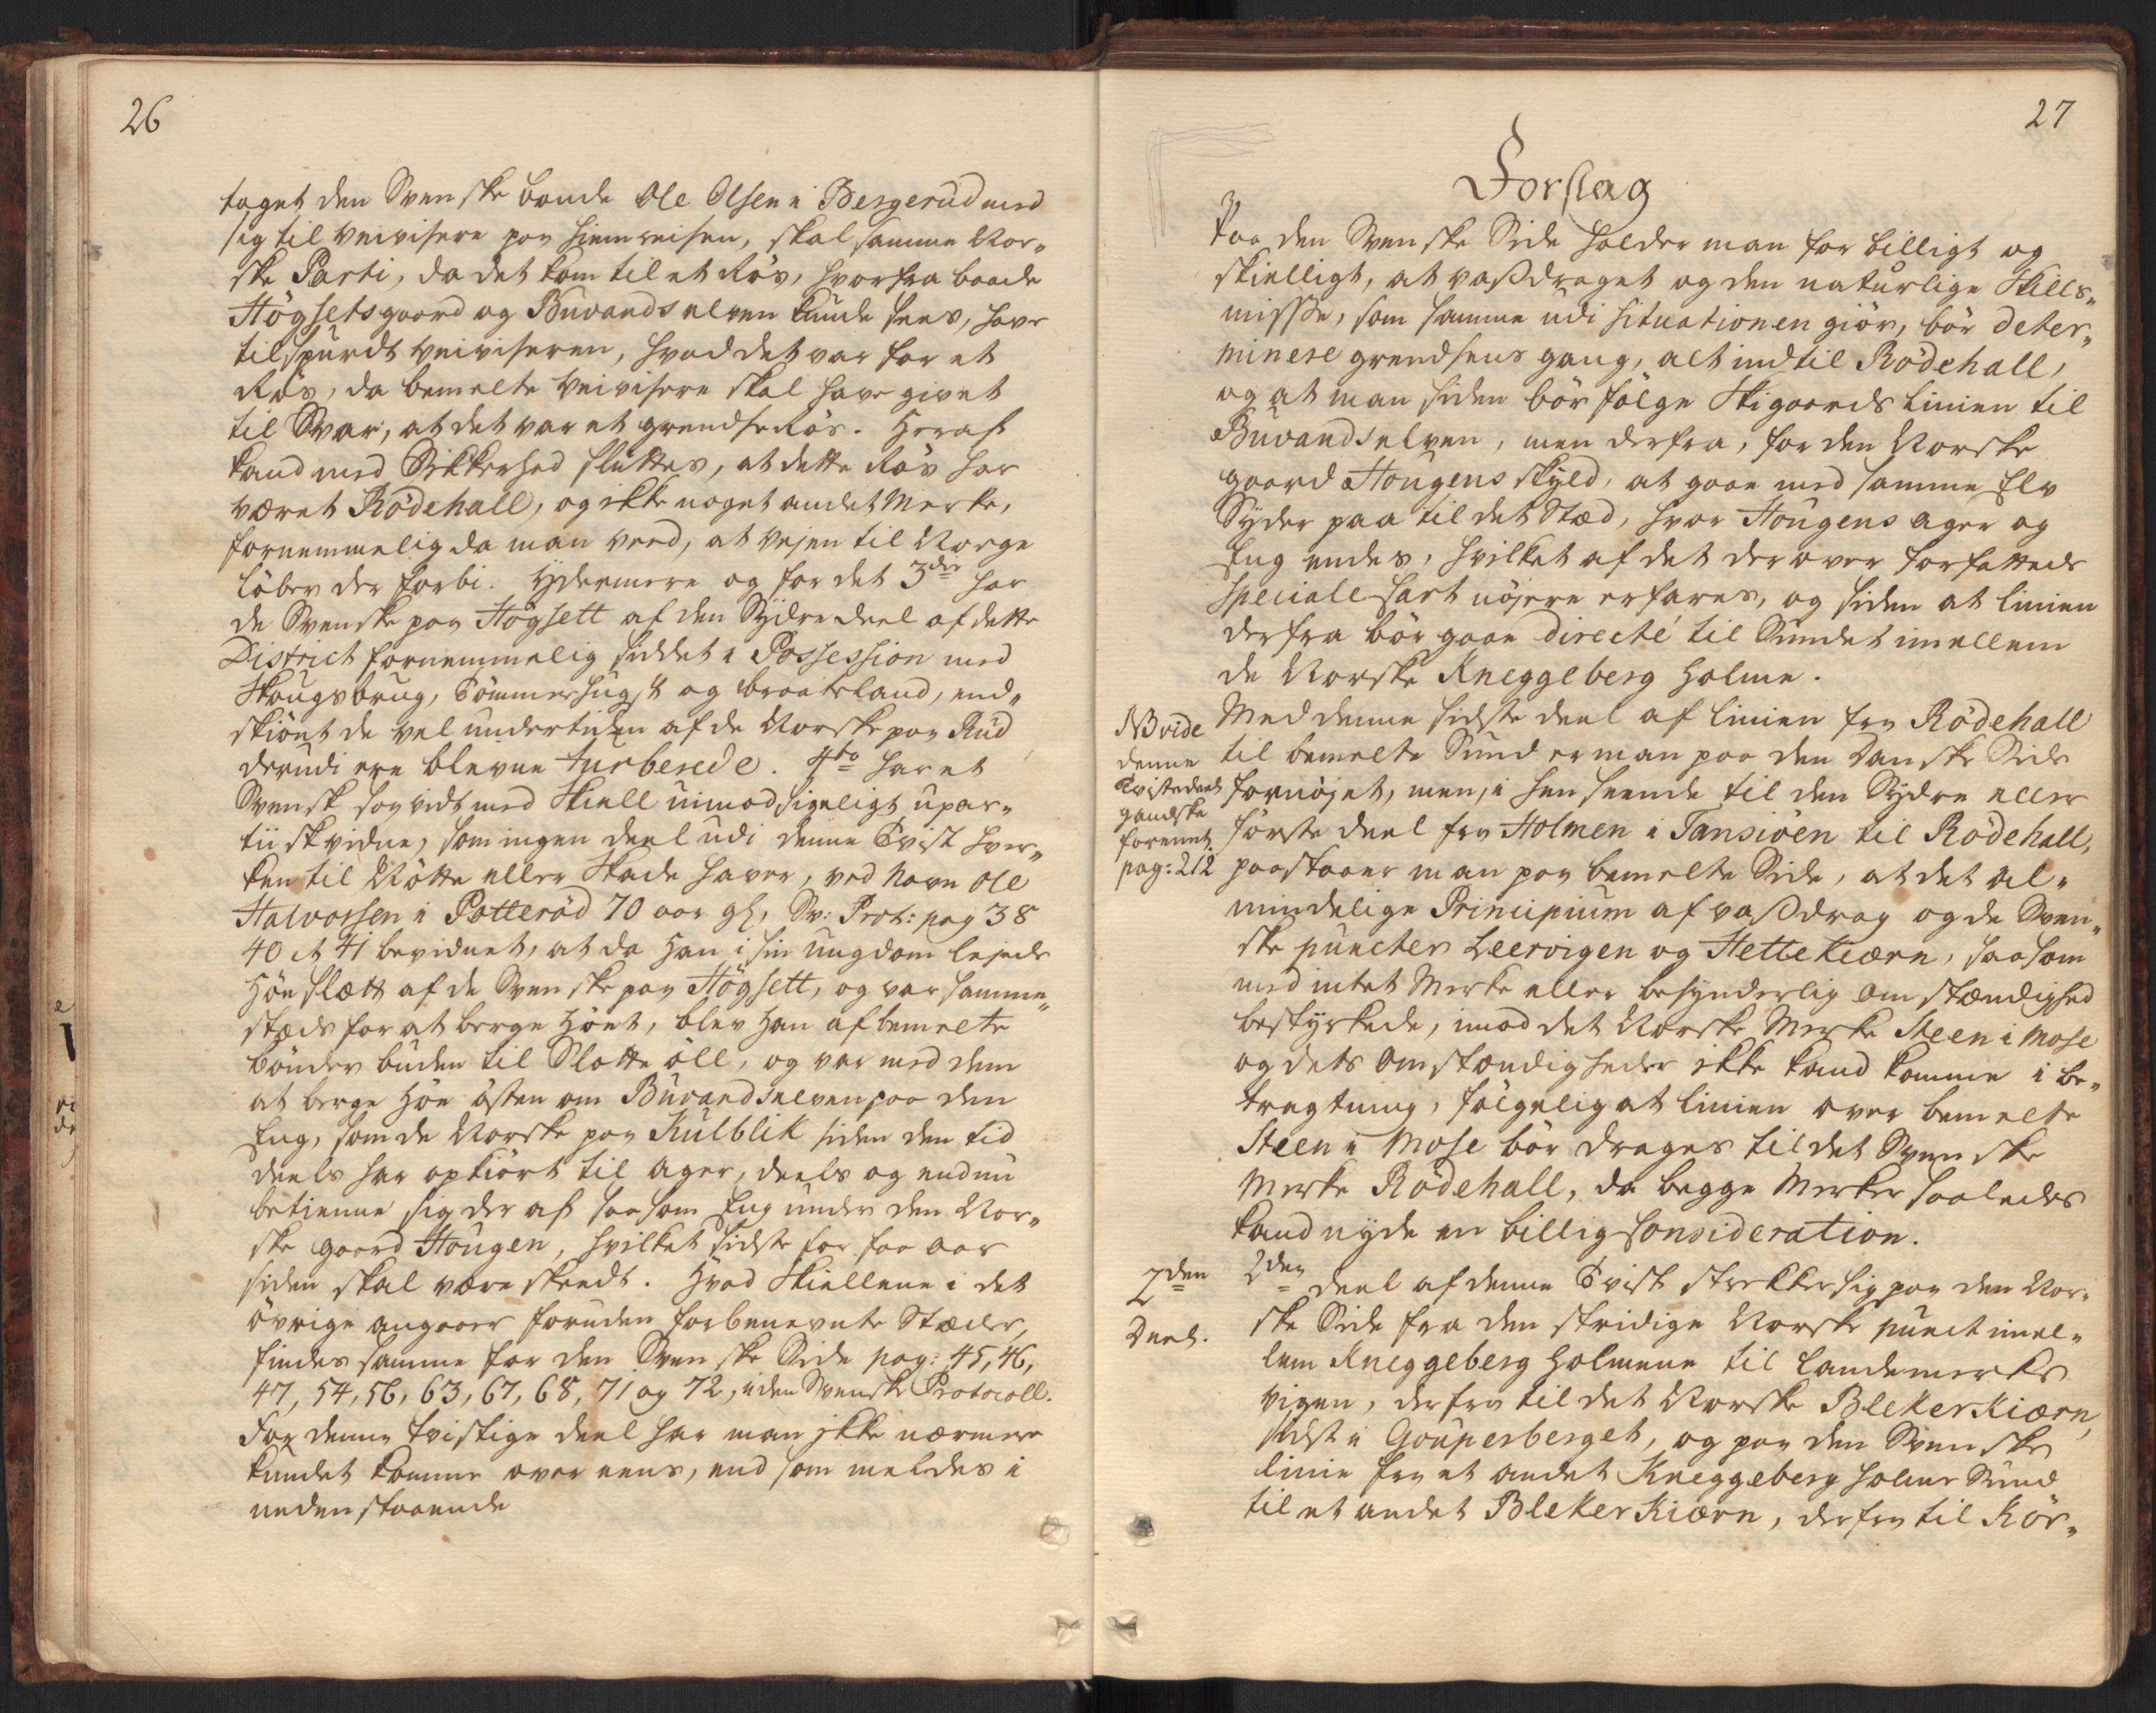 26
taget den Svenske bonde Ole Olsen i Bergerud med
sig til Veivisere paa hiemreisen, skal samme Nor„
ske Parti, da det kom til et Rös, hvorfra baade
Högsetsgaard og Buvandselven kunde sees, have
tilspurdt Veiviseren, hvad det var for et
Rös, da bemelte Veivisere skal have givet
til Svar, at det var et grendse Rös. Heraf
kand med Sikkerhed sluttes, at dette Rös har
været Rödehall, og ikke noget andet Merke,
fornemmelig da man veed, at Vejen til Norge
löber der forbi. Ydermere og for det 3die har
de Svenske paa Högsett af den Sydre deel af dette
District fornemmelig siddet i Possession med
Skougsbrug, Tömmerhugst og braateland, end„
skiönt de vel undertiden af de Norske paa Rud
derudi ere blevne turberede. 4to har et
Svensk saavidt med Skiell uimodsigeligt upar„
tiisk vidne, som ingen deel udi denne Tvist hver„
ken til Nötte eller Skade haver, ved Navn Ole
Halvorsen i Potteröd 70 aar gl, Sv: Prot: pag 38
40 et 41 bevidnet, at da han i sin ungdom lejede
Höe slætt af de Svenske paa Högsett, og var samme„
steds for at berge Höet, blev han af bemelte
bönder buden til Slotte öll, og var med dem
at berge Höe östen om Buvandselven paa den
Eng, som de Norske paa Kulblik siden den tid
deels har opkiört til Ager, deels og endnu
betienne sig der af saasom Eng under den Nor„
ske gaard Hougen, hvilket sidste for faa aar
siden skal være skeedt. Hvad Skiellene i det
övrige angaaer foruden forbenevnte Stæder,
findes samme for den Svenske Side pag: 45, 46,
47, 54, 56, 63, 67, 68, 71 og 72, i den Svenske Protocoll.
For denne tvistige deel har man ikke nærmere
kundet komme over eens, end som meldes i
nedenstaaende
27
Forslag
Paa den Svenske Side holder man for billigt og
skielligt, at vassdraget og den naturlige Skills„
misse, som samme udi situationen giör, bör deter„
minere grendsens gang, alt indtil Rödehall,
og at man siden bör fölge Skigaards Linien til
Buvandselven, men derfra, for den Norske
gaard Hougens skyld, at gaae med samme Elv
Syder paa til det Stæd, hvor Hougens Ager og
Eng endes, hvilket af det derover forfattede
Speciale Cart nöjere erfares, og siden at linien
derfra bör gaae directé til Sundet imellem
de Norske Kneggeberg Holme.
NB vide
denne
Tvistedeel
gandske
foreenet.
pag: 212
Med denne sidste deel af linien fra Rödehall
til bemelte Sund er man paa den Danske Side
fornöjet, men, i henseende til den Sydre eller
förste deel fra Holmen i Tansiöen til Rödehall,
paastaaer man paa bemelte Side, at det al„
mindelige Principium af vassdrag og de Sven„
ske puncter Leervigen og Hettekiærn, saasom
med intet Merke eller besynderlig omstændighed
bestyrkede, imod det Norske Merke Steen i Mose
og dets omstændigheder ikke kand komme i be„
tragtning, fölgelig at linien over bemelte
Steen i Mose bör drages til det Svenske
Merke Rödehall, da begge Merker saaledes
kand nyde en billig Consideration.
2den
Deel.
2den deel af denne Tvist strekker sig paa den Nor„
ske Side fra den stridige Norske punct imel„
lem Kneggeberg Holmene til Landemerks
vigen, derfra til det Norske Blekerkiærn,
sidst i Gouperberget, og paa den Svenske
linie fra et andet Kneggeberg Holme Sund
til et andet Blekerkiærn, derfra til Rör„